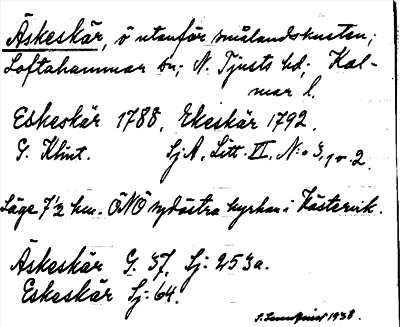 Äskeskär, ö utanför smålandskusten;
Loftahammar sn; N. Tjusts hd; Kal-
mar l.
Eskeskär 1788, Ekeskär 1792.
G. Klint. SjA, Litt. II, N:o 3, 1 o. 2.
Läge 7½ km. ÖNÖ sydöstra kyrkan i Västervik.
Äskeskär G. 37, Sj: 253a.
Eskeskär Sj: 64.
1938.